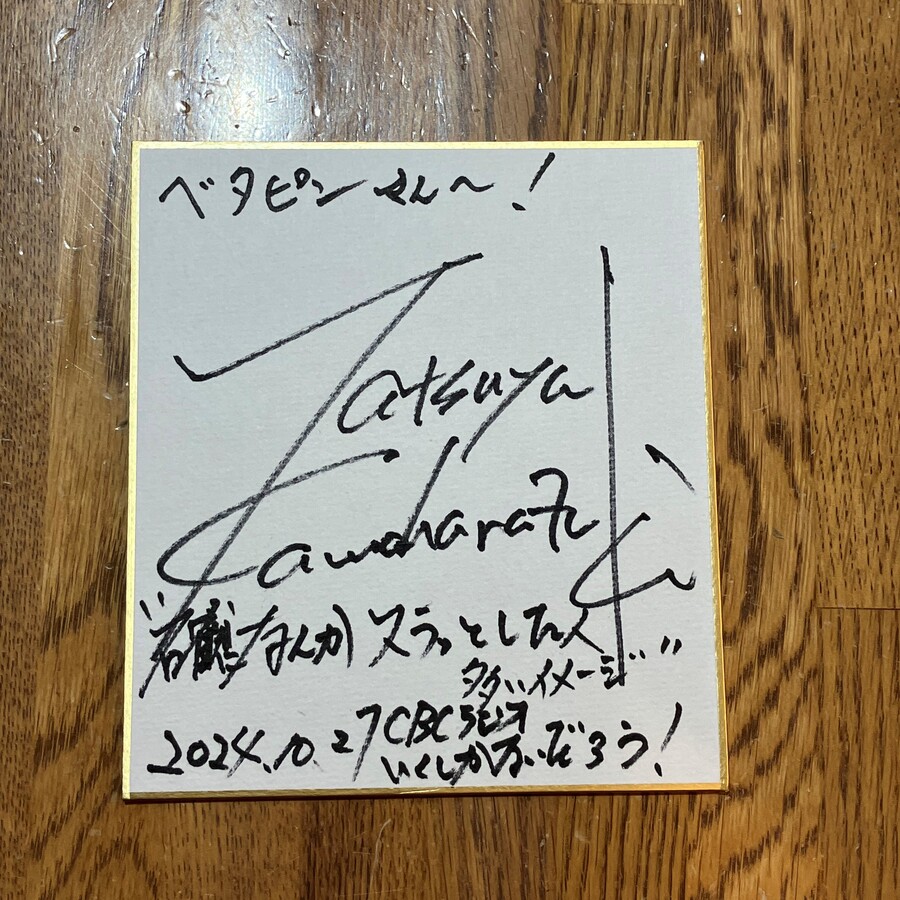 ベタピンさん〜！
Tatsuya
Kawahara
"なんかスラッとした人
多いイメージ"
2024.10.27 CBCラジオ
いくしかないだろう！